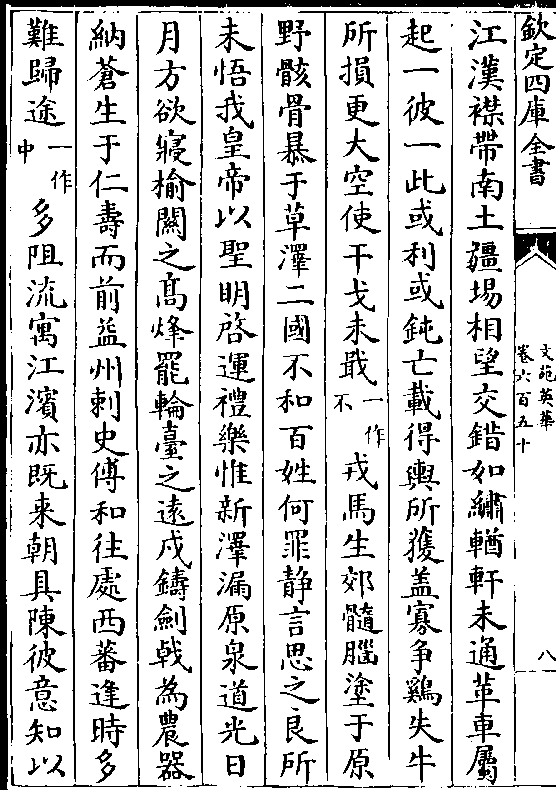 欽定四庫全書
文苑英華
卷六百五十
八
江漢襟帶南土疆埸相望交錯如繡輶軒未通革車屬
起一彼一此或利或鈍亡載得輿所獲盖寡争鷄失牛
所損更大空使干戈未戢一作不戎馬生郊髓腦塗于原
野骸骨暴于草澤二國不和百姓何罪静言思之良所
未悟我皇帝以聖明啓運禮樂惟新澤漏原泉道光日
月方欲寢榆關之髙烽罷輪臺之遠戍鑄劍戟為農器
納蒼生于仁壽而前益州刺史傅和往處西蕃逢時多
難歸途一作中多阻流寓江濱亦既来朝具陳彼意知以